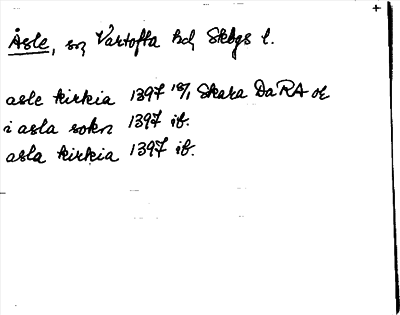 Åsle, sn Vartofta hd Skbgs l.
asle kirkia 1397 18/1 Skara DaRA or
i asla sokn 1397 ib.
asla kirkia 1397 ib.